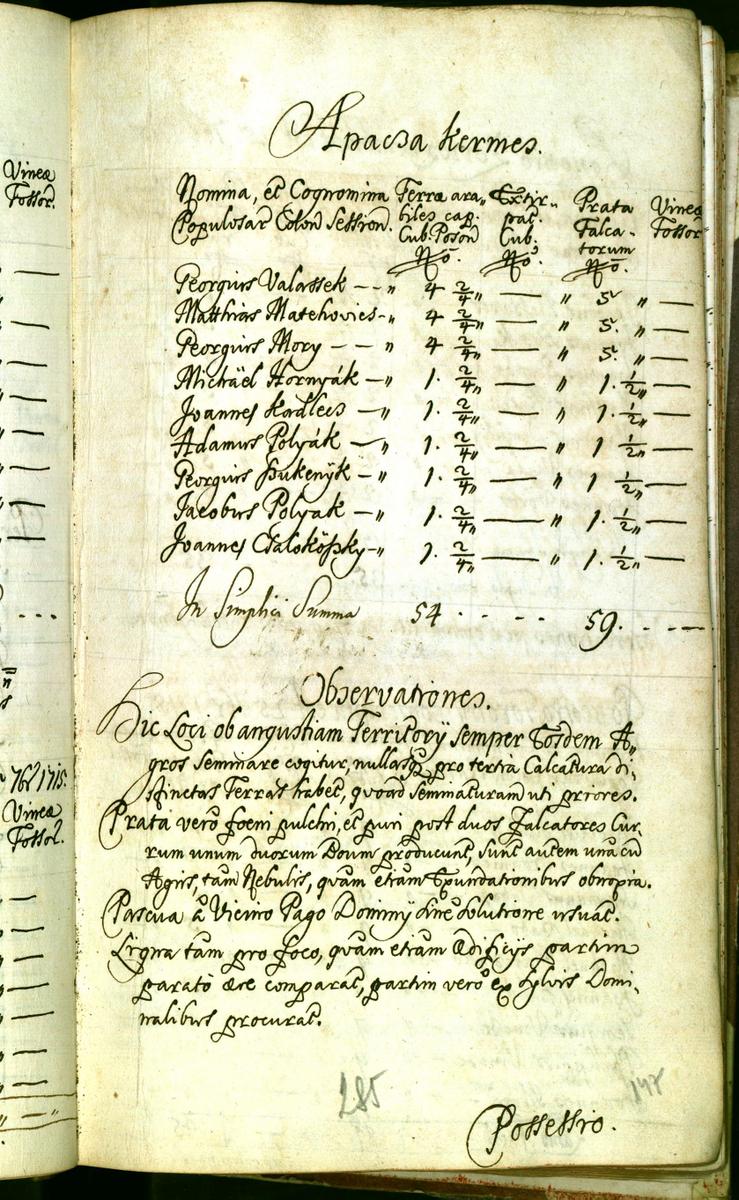 Apacza kermes.
Nomina, et Cognomina Terræ ara„ Extir„ Prata Vineæ
Populosar Colon Session. biles cap. pat. Falca- Fossor
Cub. Poson Cub. torum
No. No. No.
Georgius Valassek - - „ 4 2/4 „ — „ 5 „ —
Matthias Matehovics - „ 4 2/4 „ — „ 5. „ —
Georgius Mory — — „ 4 2/4 „ — „ 5. „ —
Michäel Hornyák — „ 1. 2/4 „ — „ 1. 1/2 „ —
Joannes Kadlecs — „ 1. 2/4 „ — „ 1. 1/2 „ —
Adamus Polyák — „ 1. 2/4 „ — „ 1 1/2 „ —
Georgius — „ 1. 2/4 „ — „ 1 1/2 „ —
Jacobus Polyak — „ 1. 2/4 „ — „ 1. 1/2 „ —
Joannes Csalokößky - „ 1. 2/4 „ — „ 1. 1/2 „ —
In Simplici Summa 54 - - - - 59. - - -
Observationes.
Hic Loci ob angustiam Territorÿ semper Eosdem A„
gros Seminare cogitur, nullasq, pro tertia Calcatura di„
stinctas Terras habet, quoad seminaturam uti priores.
Prata verò foeni pulchri, et puri post duos Falcatores Cur„
rum unum duorum Boum producunt, sunt autem una cū
Agris, tam Nebulis, quàm etiam Exundationibus obnoxia.
Pascua à Vicino Pago Dominÿ sine solutione usuat.
Ligna tam pro foco, quàm etiàm Ædificÿs partim
parato ære comparat, partim verò ex sylvis Domi„
nalibus procurat.
285
147
Possessio.
Vineæ
Fossor.
762 1715.
Vineæ
Fossor.